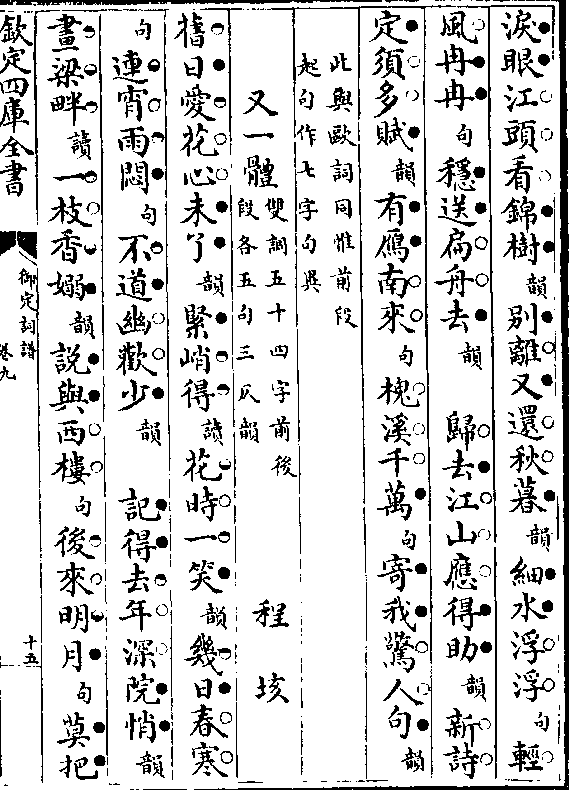 淚眼江頭看錦樹韻別離又還秋暮韻細水浮浮句輕
風冉冉句穩送扁舟去韻歸去江山應得助韻新詩
定須多賦韻有鴈南來句槐溪千萬句寄我驚人句韻
此與歐詞同惟前段
起句作七字句異
又一體雙調五十四字前後
段各五句三仄韻
程垓
舊日愛花心未了韻緊峭得讀花時一笑韻幾日春寒
句連宵雨悶句不道幽歡少韻記得去年深院悄韻
畫梁畔讀一枝香嫋韻說與西樓句後來明月句莫把
欽定四庫全書
御定詞譜
卷九
十五